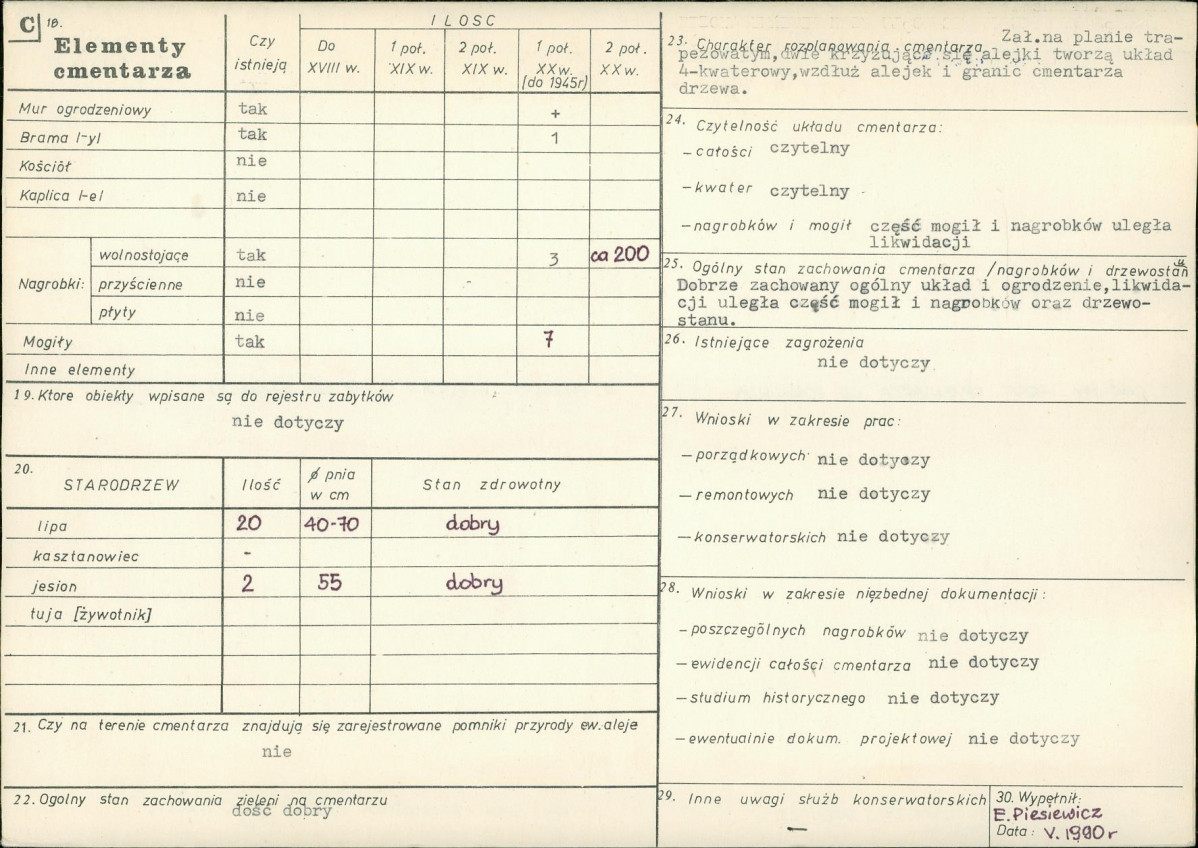 C 18.
Elementy
cmentarza
Czy
istnieją
ILOSC
Do
XVIII w.
1 poł.
XIX w.
2 poł.
XIX w.
1 poł.
XX w.
(do 1945r)
2 poł.
XX w.
Mur ogrodzeniowy tak +
Brama /-y/ tak 1
Kościół nie
Kaplica /-e/ nie
Nagrobki:
wolnostojące tak 3 ca 200
przyścienne nie
płyty nie
Mogiły tak 7
Inne elementy
19. Ktore obiekty wpisane są do rejestru zabytków
nie dotyczy
20.
STARODRZEW
Ilość
ø pnia
w cm
Stan zdrowotny
lipa 20 40-70 dobry
kasztanowiec -
jesion 2 55 dobry
tuja [żywotnik]
21. Czy na terenie cmentarza znajdują się zarejestrowane pomniki przyrody ew. aleje
nie
22. Ogolny stan zachowania zieleni na cmentarzu
dość dobry
23. Charakter rozplanowania cmentarza Zał.na planie tra-
pezowatym,dwie krzyżujące się alejki tworzą układ
4-kwaterowy,wzdłuż alejek i granic cmentarza
drzewa.
24. Czytelność układu cmentarza:
- całości czytelny
- kwater czytelny
- nagrobków i mogił część mogił i nagrobków uległa
likwidacji
25. Ogólny stan zachowania cmentarza /nagrobków i drzewostanu
Dobrze zachowany ogólny układ i ogrodzenie,likwida-
cji uległa część mogił i nagrobków oraz drzewo-
stanu.
26. Istniejące zagrożenia
nie dotyczy
27. Wnioski w zakresie prac:
- porządkowych nie dotyczy
- remontowych nie dotyczy
- konserwatorskich nie dotyczy
28. Wnioski w zakresie nięzbednej dokumentacji:
- poszczególnych nagrobków nie dotyczy
- ewidencji całości cmentarza nie dotyczy
- studium historycznego nie dotyczy
- ewentualnie dokum. projektowej nie dotyczy
29. Inne uwagi służb konserwatorskich
—
30. Wypełnił:
E. Piesiewicz
Data: V. 1990 r